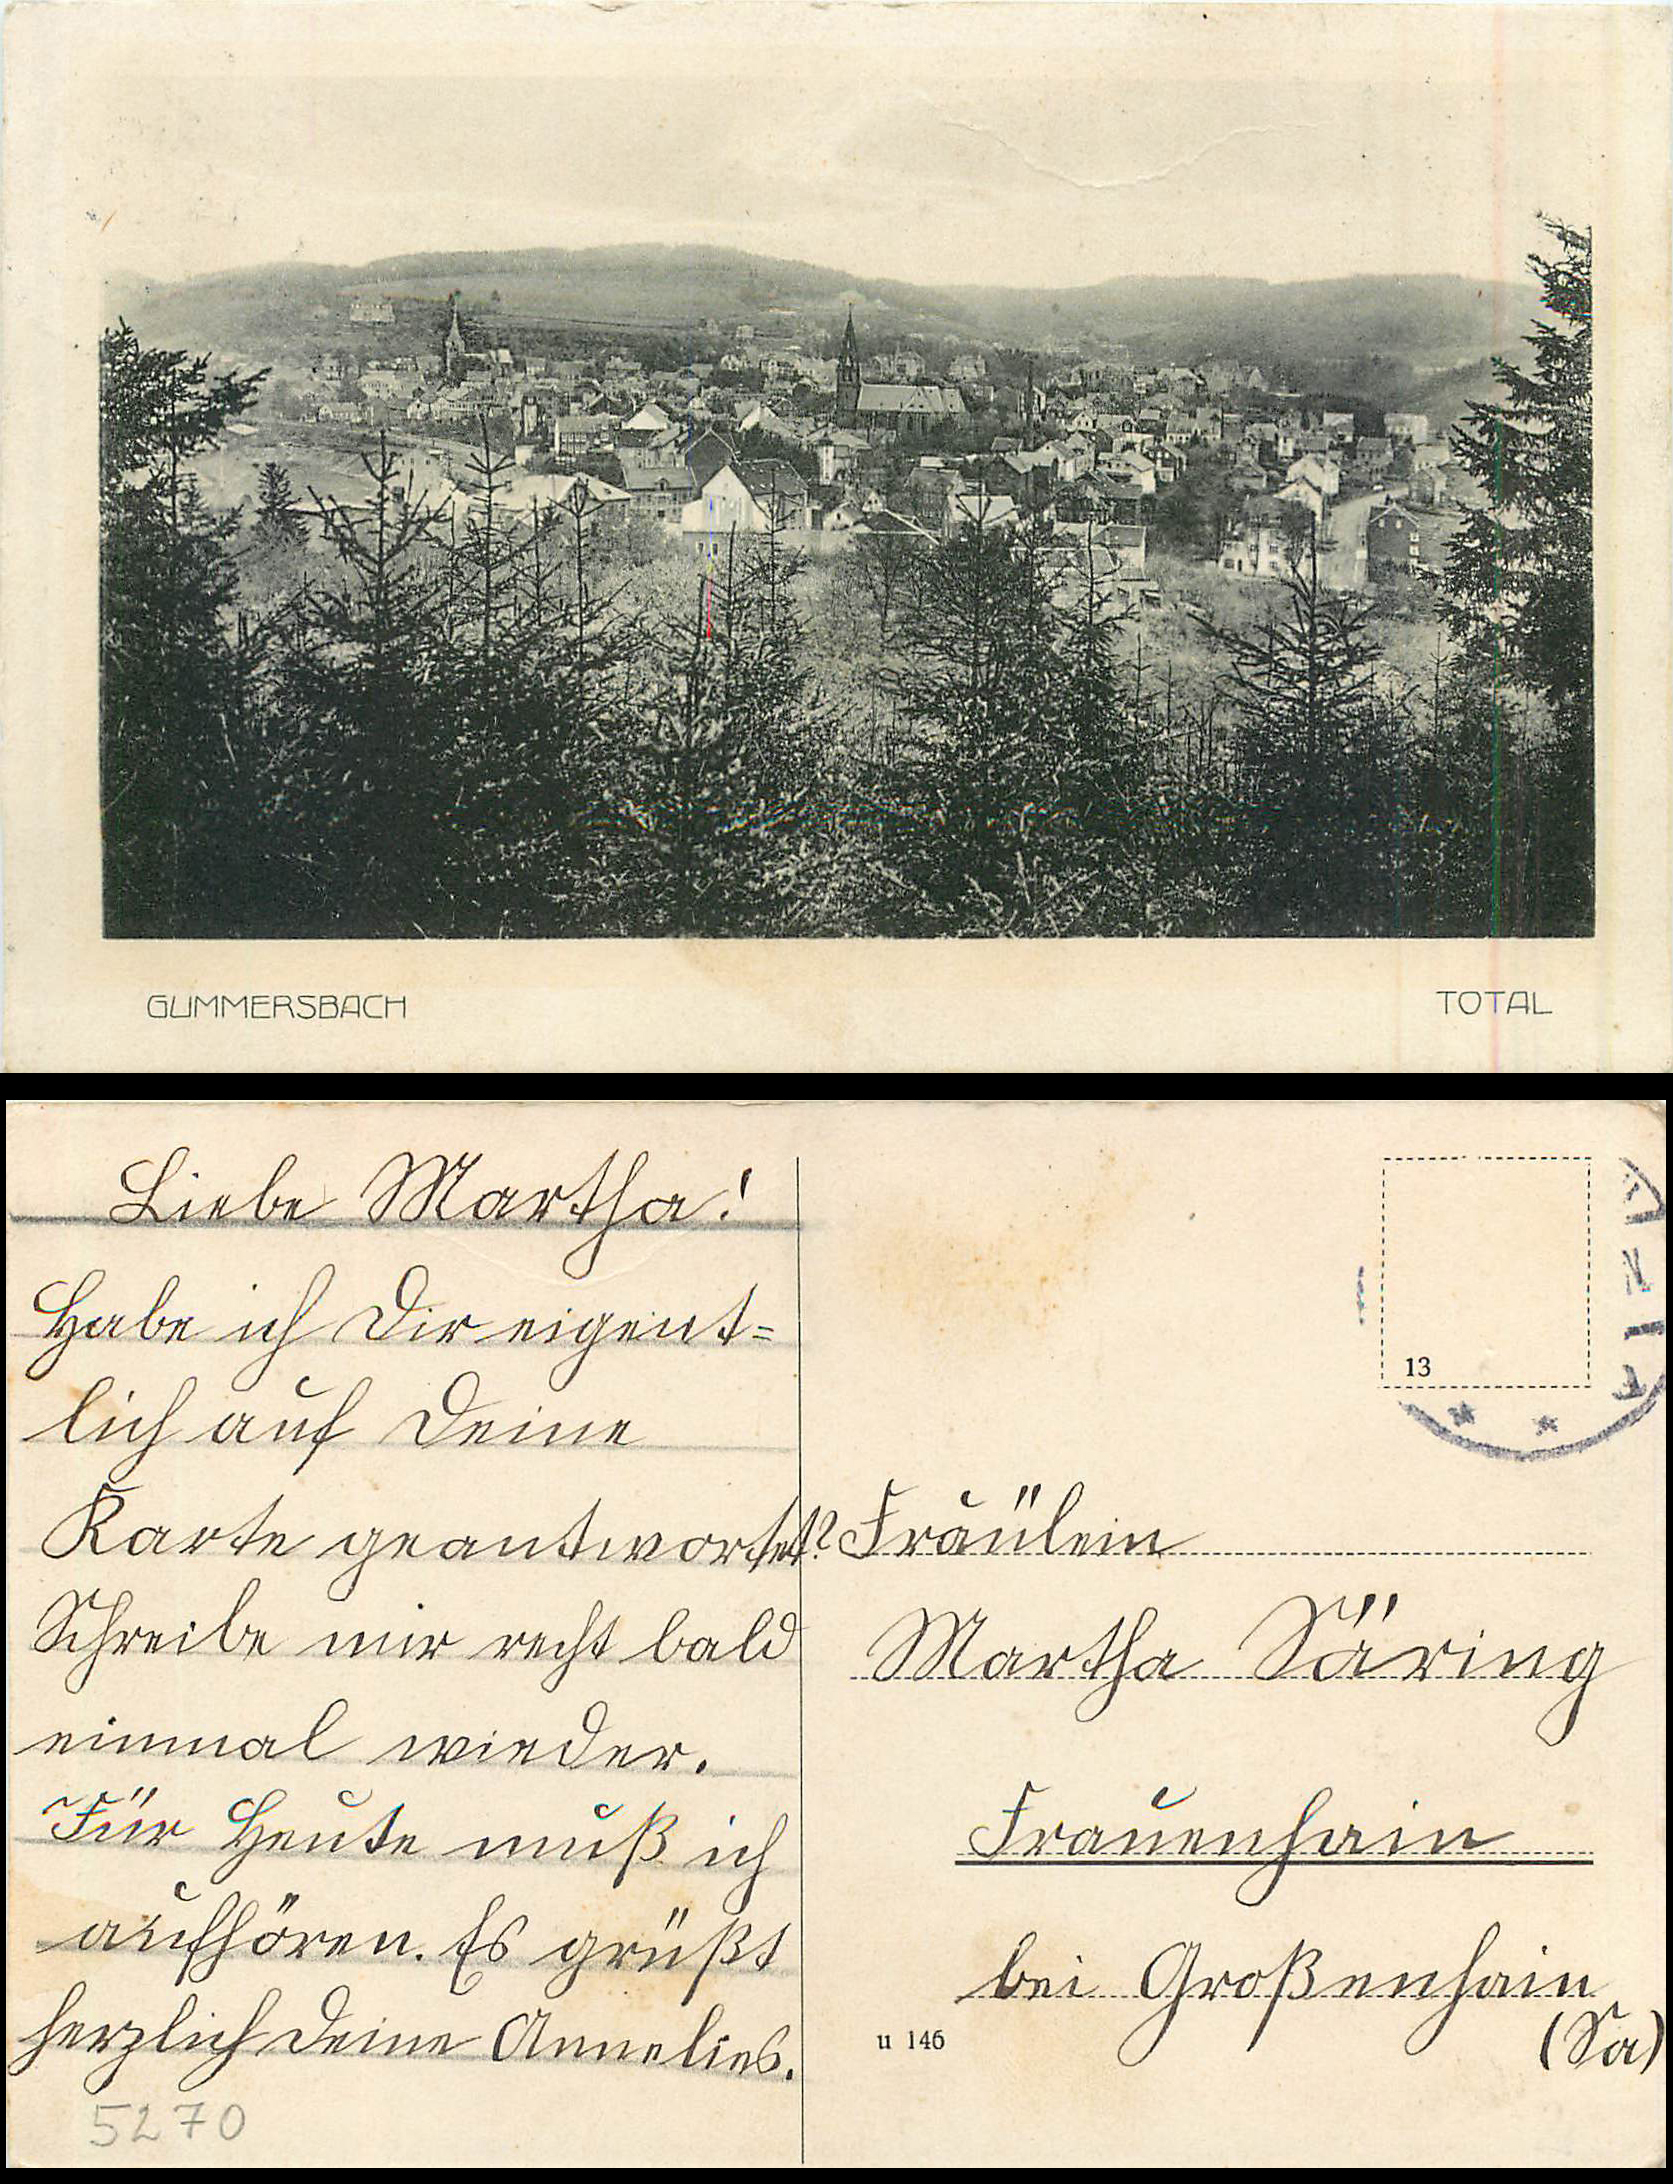 GUMMERSBACH
TOTAL
Liebe Martha!
Habe ich Dir eigent=
lich auf Deine
Karte geantwortet?
Schreibe mir recht bald
einmal wieder.
Für Heute muß ich
aufhören. Es grüßt
herzlich Deine Annelies.
5270
13
Fräulein
Martha Säring
Frauenhain
bei Großenhain
(Sa)
u 146